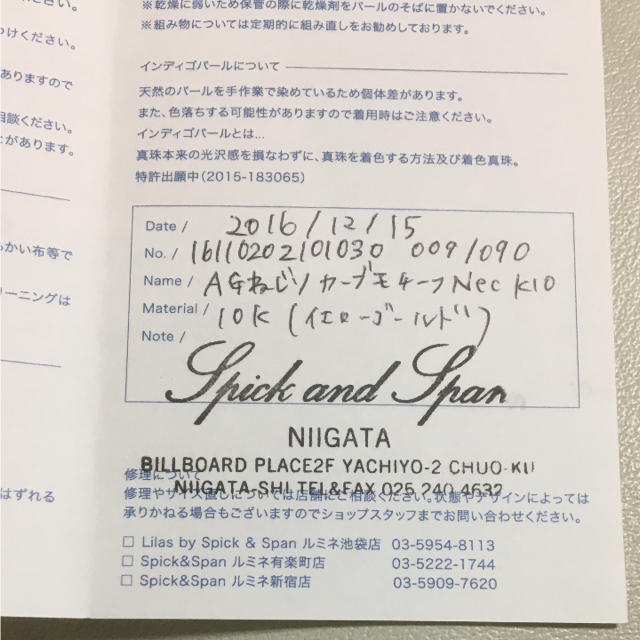 さい。
※乾燥に弱いため保管の際に乾燥剤をパールのそばに置かないでください。
※組み物については定期的に組み直しをお勧めしております。
つけください。
ありますので
相談ください。
があります。
らかい布等で
リーニングは
はずれる
インディゴパールについて
天然のパールを手作業で染めているため個体差があります。
また、色落ちする可能性がありますので着用時はご注意ください。
インディゴパールとは...
真珠本来の光沢感を損なわずに、真珠を着色する方法及び着色真珠。
特許出願中(2015-183065)
Date / 2016/12/15
No. / 16110202101030 009/090
Name / AGねじりカーブモチーフNec K10
Material / 10K (イエローゴールド)
Note /
Spick and Span
NIIGATA
BILLBOARD PLACE2F YACHIYO-2 CHUO-KU
NIIGATA-SHI TEL&FAX 025 240 4632
修理について
修理やサイズ直しについては店舗にご相談ください。状態やデザインによっては
承りかねる場合もございますのでショップスタッフまでお問い合わせください。
□ Lilas by Spick & Span ルミネ池袋店 03-5954-8113
□ Spick&Span ルミネ有楽町店 03-5222-1744
□ Spick&Span ルミネ新宿店 03-5909-7620